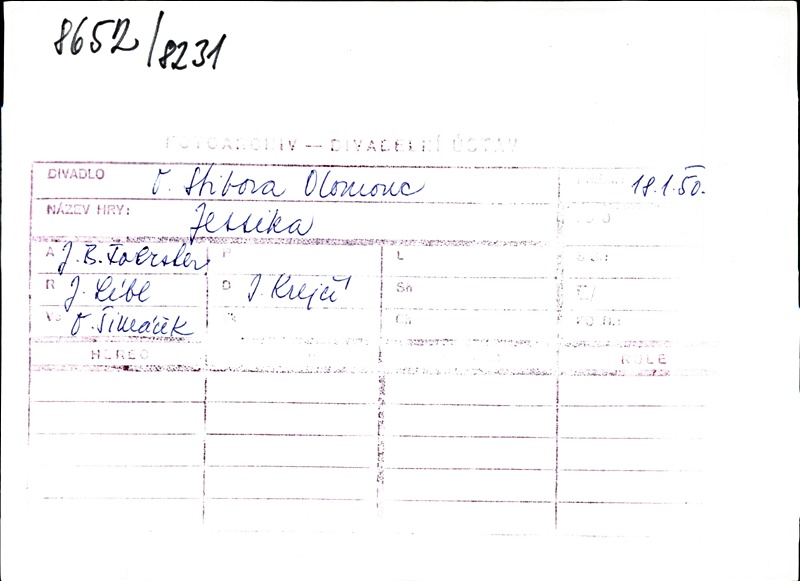 8652/8231
FOTOARCHIV — DIVADELNÍ ÚSTAV
DIVADLO O. Stibora Olomouc 18.1.50.
NÁZEV HRY: Jessika
A J.B. Foerster P L
R J. Lébl D J. Krejčí Sn
Vs O. Šimáček Ch
HEREC ROLE